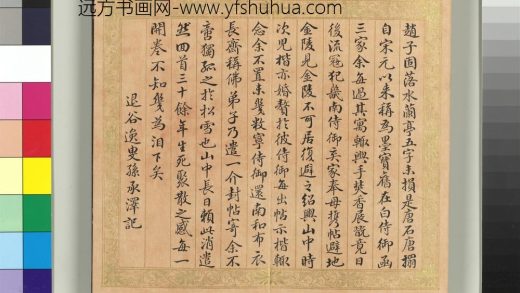 远方书画网-www.yfshuhua.com
趙子固落水蘭亭五字未損是唐石唐搨
自宋元以来稱為墨寶舊在白侍御函
三家余每過其寓輙興手焚香展翫竟日
後流冦犯畿南侍御吴家奉母携帖避地
金陵見金陵不可居復避之紹興山中時
次児楷亦婚贅於彼侍御每出帖示楷輙
念余不置未幾数寧侍御還南和布衣
長齋稱佛弟子乃遣一介封帖寄余不
啻獨孤之於松雪也山中長日賴此消遣
然四首三十餘年生死聚散之感每一
開卷不知幾為泪下矣
退谷逸叟孫承澤記